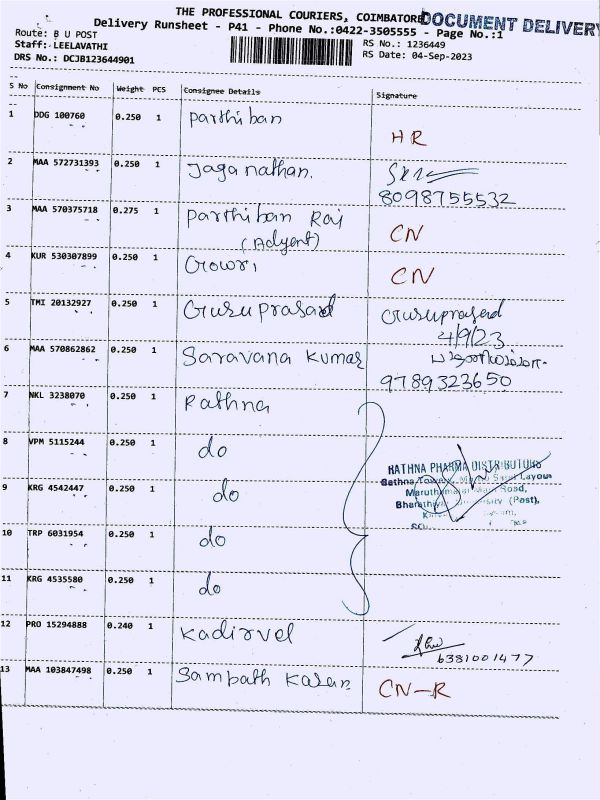 THE PROFESSIONAL COURIERS, COIMBATORE
DOCUMENT DELIVERY
Delivery Runsheet - P41 - Phone No.:0422-3505555 - Page No.:1
Route: B U POST
RS No.: 1236449
Staff: LEELAVATHI
RS Date: 04-Sep-2023
DRS No.: DCJB123644901
S No Consignment No Weight PCS Consignee Details Signature
1 DDG 100760 0.250 1 Parthiban HR
2 MAA 572731393 0.250 1 Jaganathan.
8098755532
3 MAA 570375718 0.275 1 Parthiban Raj CN
(Adyent)
4 KUR 530307899 0.250 1 Gowri CN
5 TMI 20132927 0.250 1 Guruprasad Guruprasad
4/9/23
6 MAA 570862862 0.250 1 Saravana Kumar
9789323650
7 NKL 3238070 0.250 1 Rathna
8 VPM 5115244 0.250 1 do
RATHNA PHARMA DISTRIBUTORS
Rathna Layout
9 KRG 4542447 0.250 1 do
Road,
(Post),
10 TRP 6031954 0.250 1 do
11 KRG 4535580 0.250 1 do
12 PRO 15294888 0.240 1 Kadirvel
6381001477
13 MAA 103847498 0.250 1 Sampath CN-R